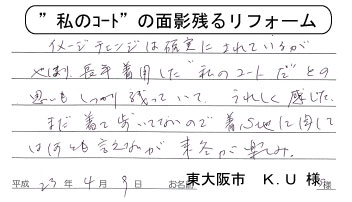 ”私のｺｰﾄ”の面影残るリフォーム
イメージチェンジは確実にされているが
やはり長年着用した“私のコートだ”との
思いもしっかり残っていて、うれしく感じた。
まだ着て歩いてないので着心地に関して
は何とも言えないが来冬が楽しみ。
平成 23年 4月 9日 お名前 東大阪市 K.U 様